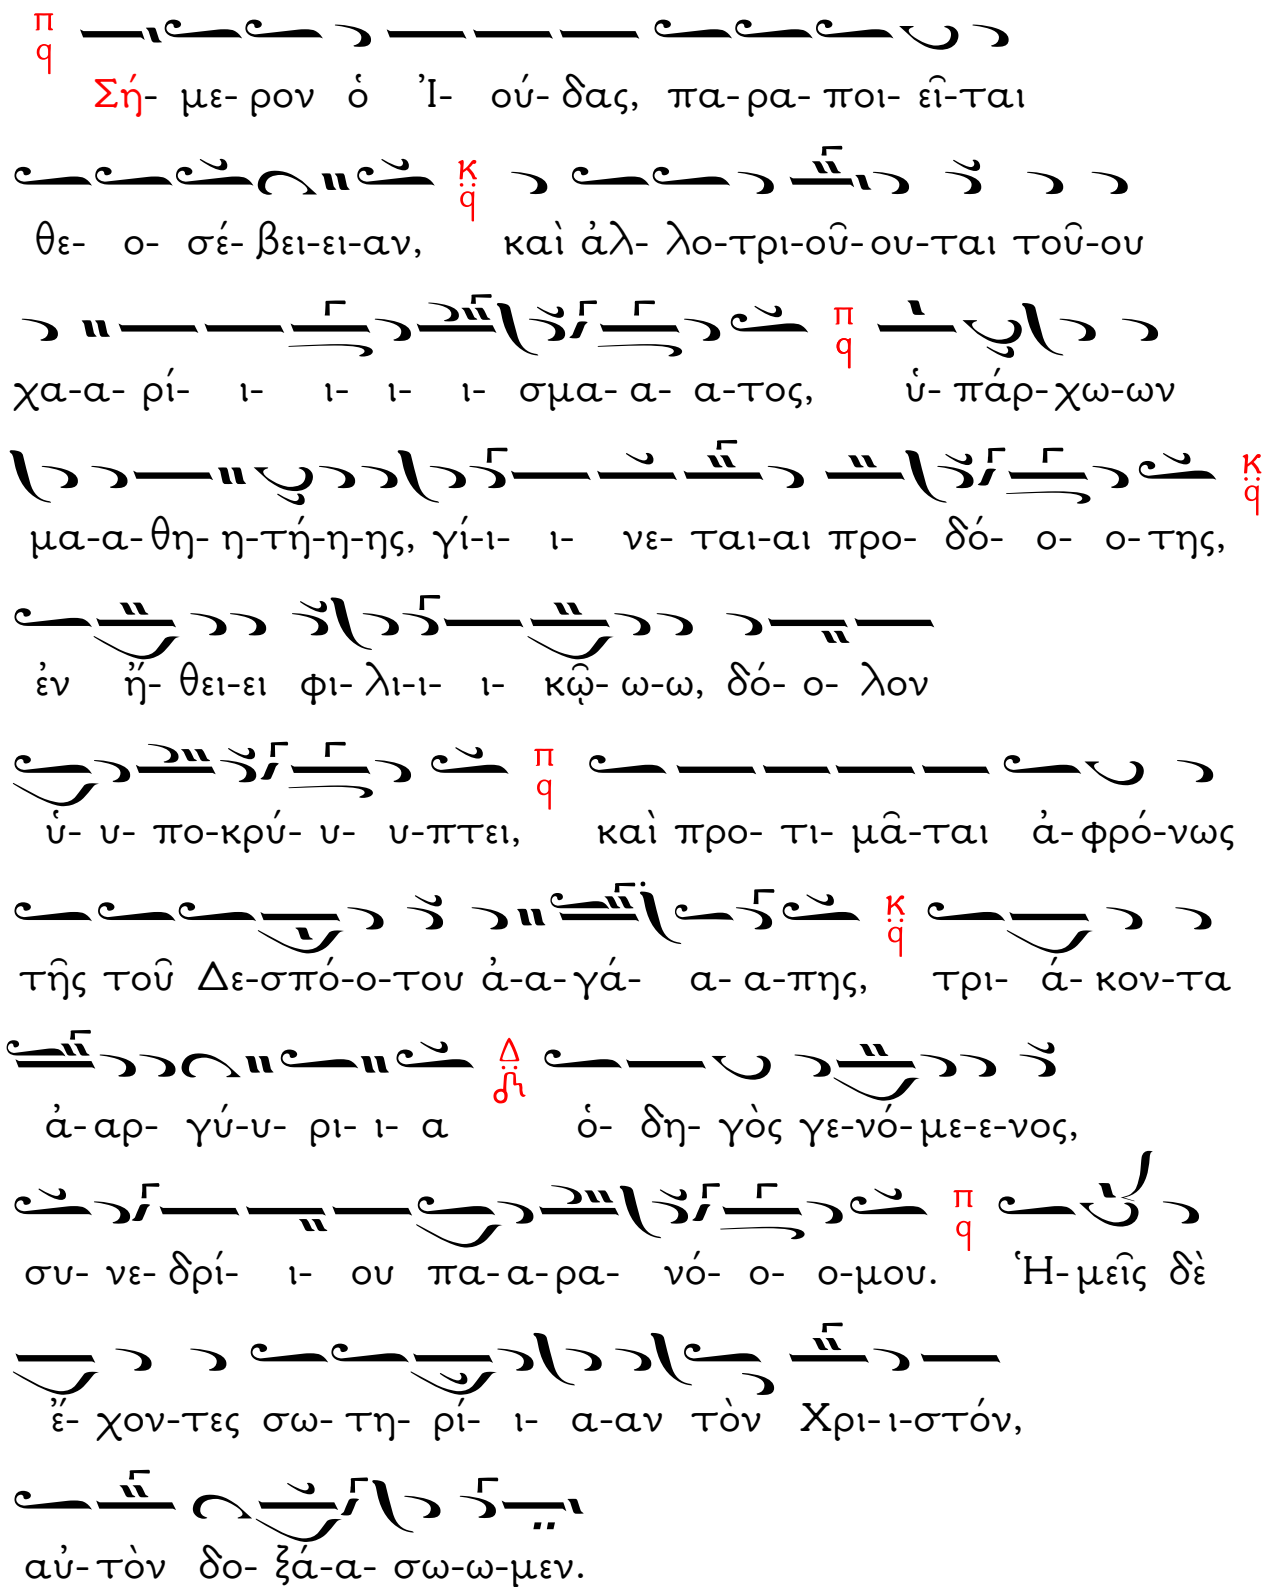 π q
Σή- με- ρον ὁ Ἰ- ού- δας, πα- ρα- ποι- εῖ-ται
κ q̈
θε- ο- σέ- βει-ει-αν, καὶ ἀλ- λο-τρι-οῦ-ου-ται τοῦ-ου
π q
χα-α- ρί- ι- ι- ι- ι- σμα- α- α-τος, ὑ- πάρ-χω-ων
κ q̈
μα-α-θη- η-τή-η-ης, γί-ι- ι- νε- ται-αι προ- δό- ο- ο-της,
ἐν ἤ- θει-ει φι- λι-ι- ι- κῷ- ω-ω, δό- ο- λον
π q
ὑ- υ- πο-κρύ- υ- υ-πτει, καὶ προ- τι- μᾶ-ται ἀ-φρό-νως
κ q̈
τῆς τοῦ Δε-σπό-ο-του ἀ-α-γά- α- α-πης, τρι- ά- κον-τα
Δ
ἀ-αρ- γύ-υ- ρι- ι- α ὁ- δη- γὸς γε-νό-με-ε-νος,
π q
συ- νε- δρί- ι- ου πα-α-ρα- νό- ο- ο-μου. Ἡ-μεῖς δὲ
ἔ- χον-τες σω- τη- ρί- ι- α-αν τὸν Χρι-ι-στόν,
αὐ-τὸν δο- ξά-α- σω-ω-μεν.